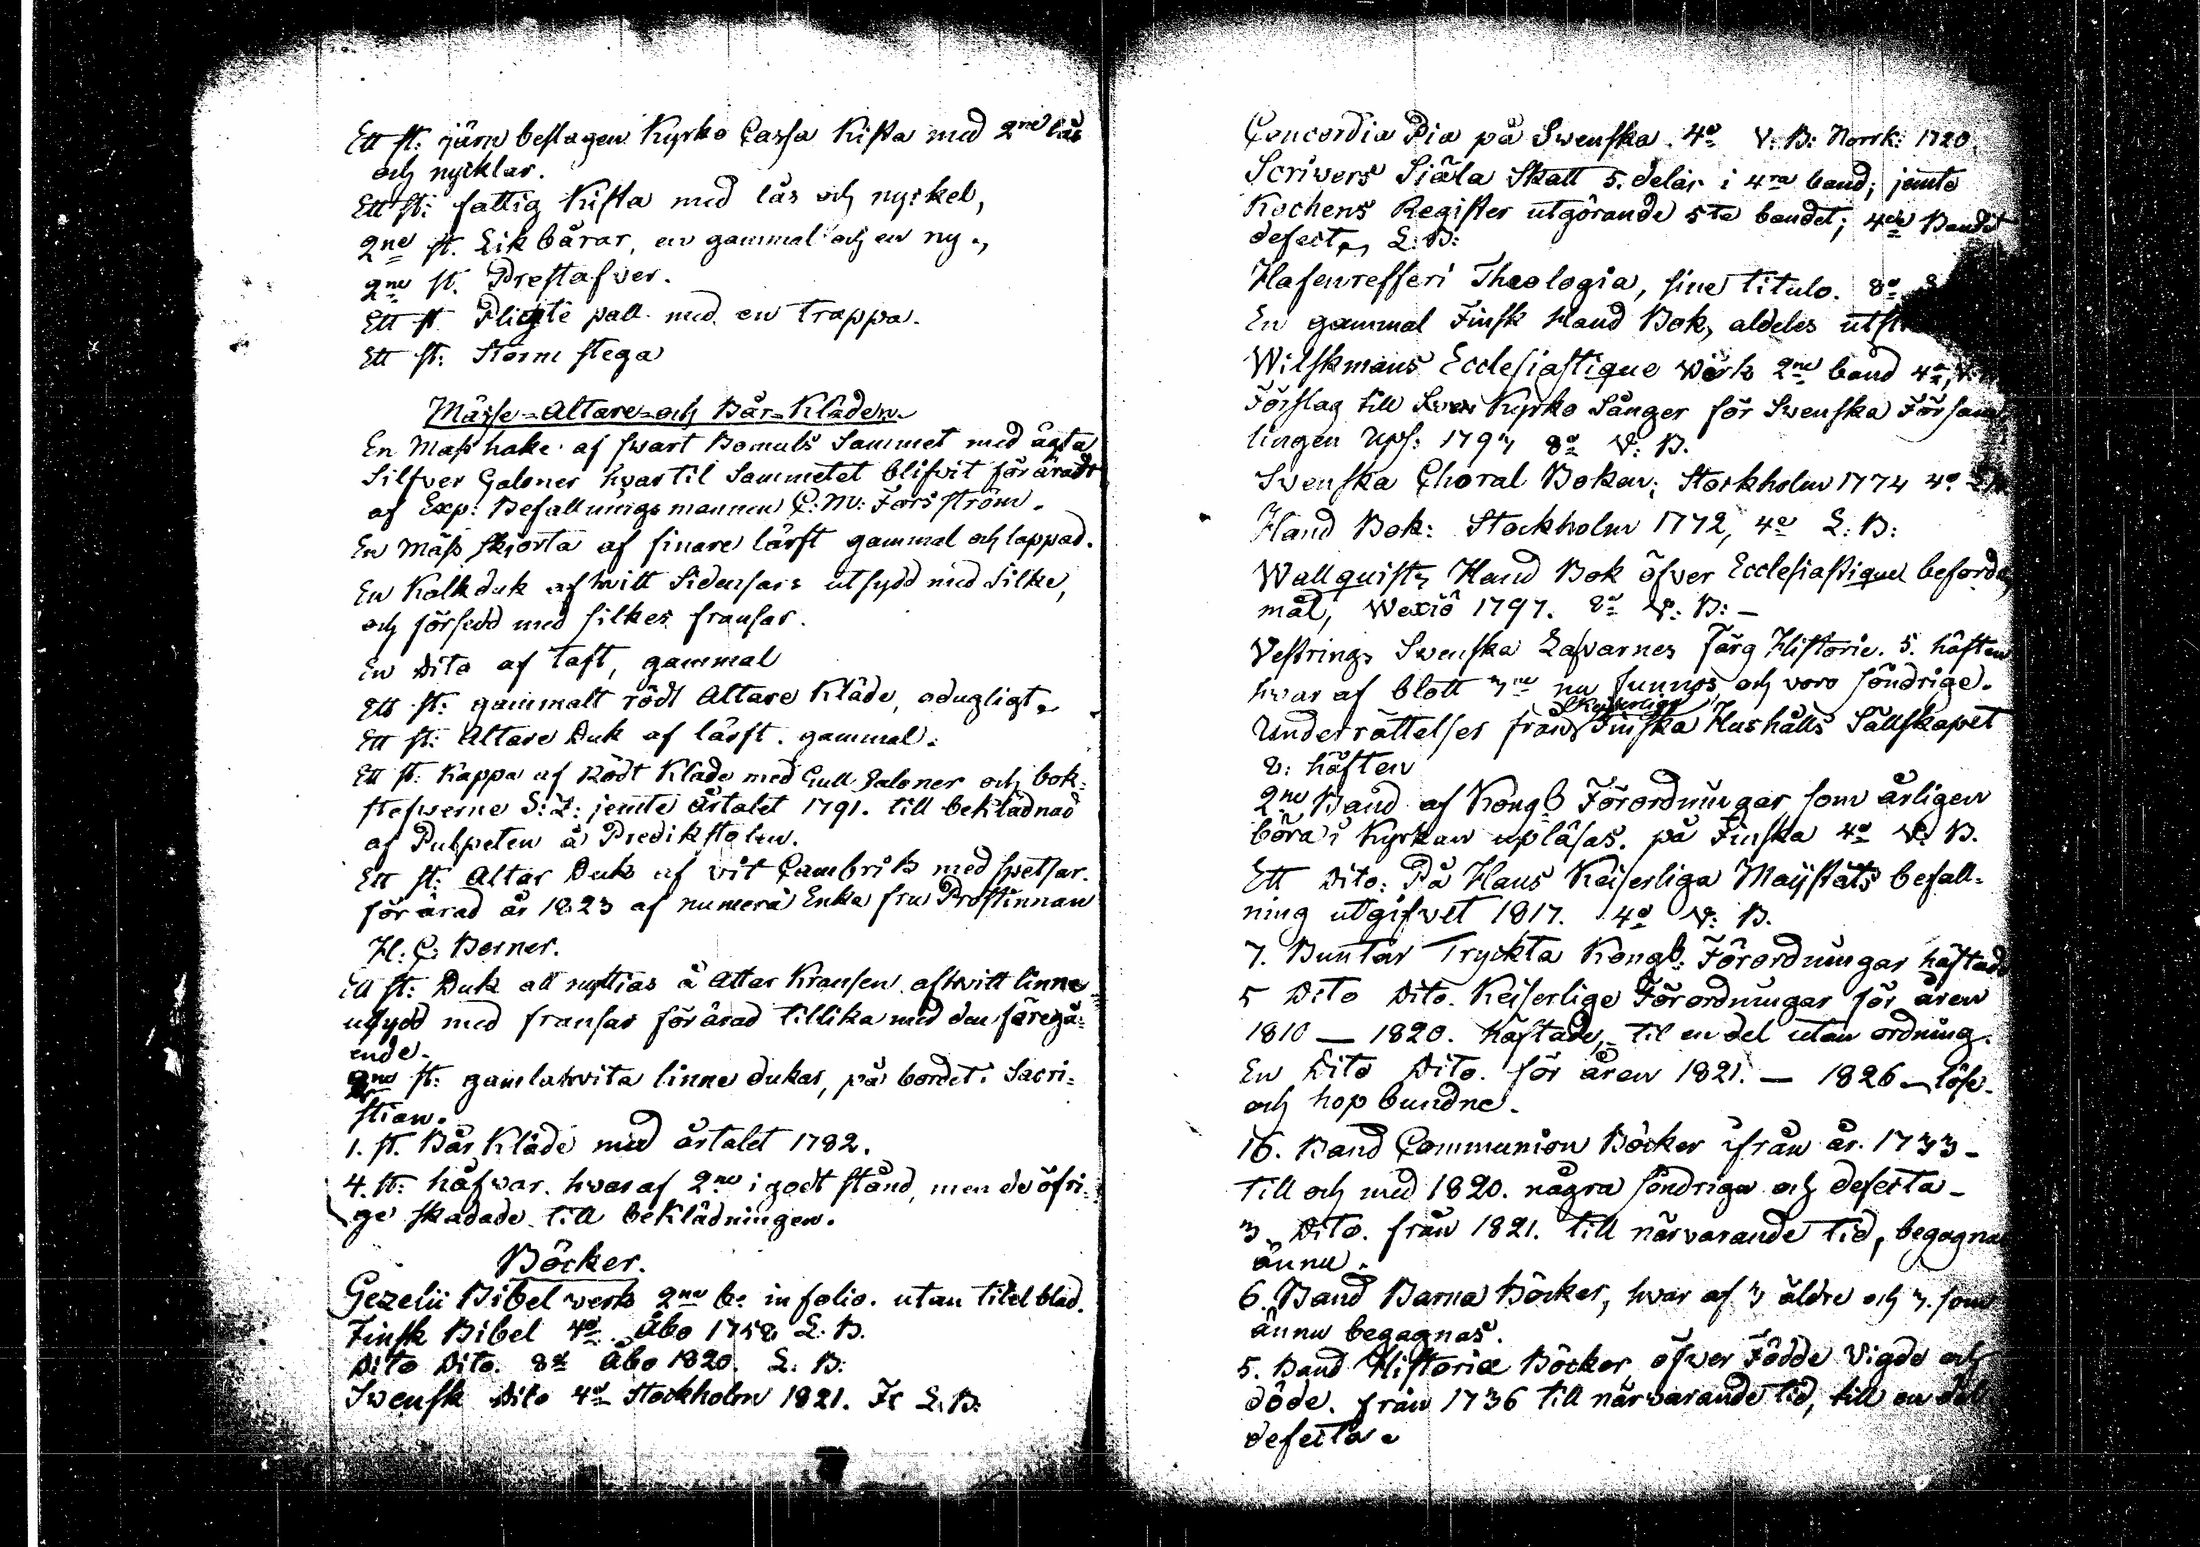 Ett st: järn beslagen Kyrko Cassa Kista med 2ne lås
och nycklar.
Ett st: fattig Kista med lås och nyckel,
2ne st. Lik bårar, en gammal och en ny.,
2ne st. Prestafver.
Ett st Pligte pall med en trappa.
Ett st: Storm stega
Mässe-Altare-och Bår-Kläden.
En Mass hake af swart Bomuls Sammet med ägta
Silfver Galoner hvartil Sammetet blifvit föräradt
af Exp: Befallningsmannen C: M: Forsström.
En Mäss skjorta af finare lärft gammal och lappad.
En Kalkduk af hvitt Sidensars utsydd med Silke,
och försedd med silkes fransar.
En Dito af taft, gammal
Ett st: gammalt rödt Altare Kläde, odugligt.
Ett st: Altare Duk af lärft. gammal.
Ett st: Kappa af Rödt Kläde med Gull Galoner och bok-
stefwerne S: L: jemte årtalet 1791. till beklädnad
af Pulpeten å Predikstolen.
Ett st: Altar Duk af vit Cambrik med spetsar.
förärad år 1823 af numera Enke fru Prostinnan
H: C: Berner.
Ett st: Duk att nyttias å Altar Kransen af hvitt linne
utsydd med fransar förärad tillika med den föregå-
ende.
2ne st: gamla hvita linne dukar, på bordet i Sacri-
stian.
1. st. Bår Kläde med årtalet 1782.
4. st: håfvar. hvaraf 2ne i godt stånd, men de öfri-
ge skadade till beklädningen.
Böcker.
Gezelii Bibel verk 2ne b. in folio. utan titel blad.
Finsk Bibel 4o Åbo 1758 L. B.
Dito Dito. 8o Åbo 1820. L: B:
Swensk Dito 4o Stockholm 1821. Fr L: B:
Concordia Pia på Swenska. 4o V: B: Norrk: 1720.
Scrivers Siäla Skatt 5. delar i 4ra band; jemte
Kochens Register utgörande 5te bandet; 4de Bandet
defect, L: B:
Hafenrefferi Theologia, sine titulo. 8o
En gammal Finsk Hand Bok, aldeles
Wilskmans Ecclesiastique Wärk 2ne band 4o, V:
Förslag till Kyrko Sånger för Swenska Försam
lingen Ups: 1797 8o V: B.
Svenska Choral Boken; Stockholm 1774 4o
Hand Bok: Stockholm 1772, 4o L: B:
Wallquists Hand Bok öfver Ecclesiastique beford
mål, Wexiö 1797. 8o V: B: -
Vestrings Swenska Lafvarnes Färg Historie. 5. häften
hvar af blott 3ne nu funnos, och voro söndrige.
Kejserliga
Underrättelser från Finska Hushålls Sällskapet
8: häften
2ne Band af Kongl Förordningar som årligen
böra i Kyrkan upläsas. på Finska 4o V: B.
Ett Dito: På Hans Keiserliga Majjstäts befall-
ning utgifvet 1817. 4o V: B.
7. Buntar Tryckta Kongl: Förordningar häftade
5 Dito Dito. Keiserlige Förordningar för åren
1810 — 1820. häftade, til en del utan ordning.
En Dito Dito. för åren 1821. — 1826 löse-
och hop bundne.
16. Band Communion Böcker ifrån år 1733-
till och med 1820. några söndriga och defecta-
3 Dito. från 1821. till närvarande tid, begagnas
ännu.
6. Band Barna Böcker, hvar af 3 äldre och 3. som
ännu begagnas.
5. Band Historiæ Böcker, öfver Födde Vigde och
döde. från 1736 till närvarande tid, till en del
defecta.